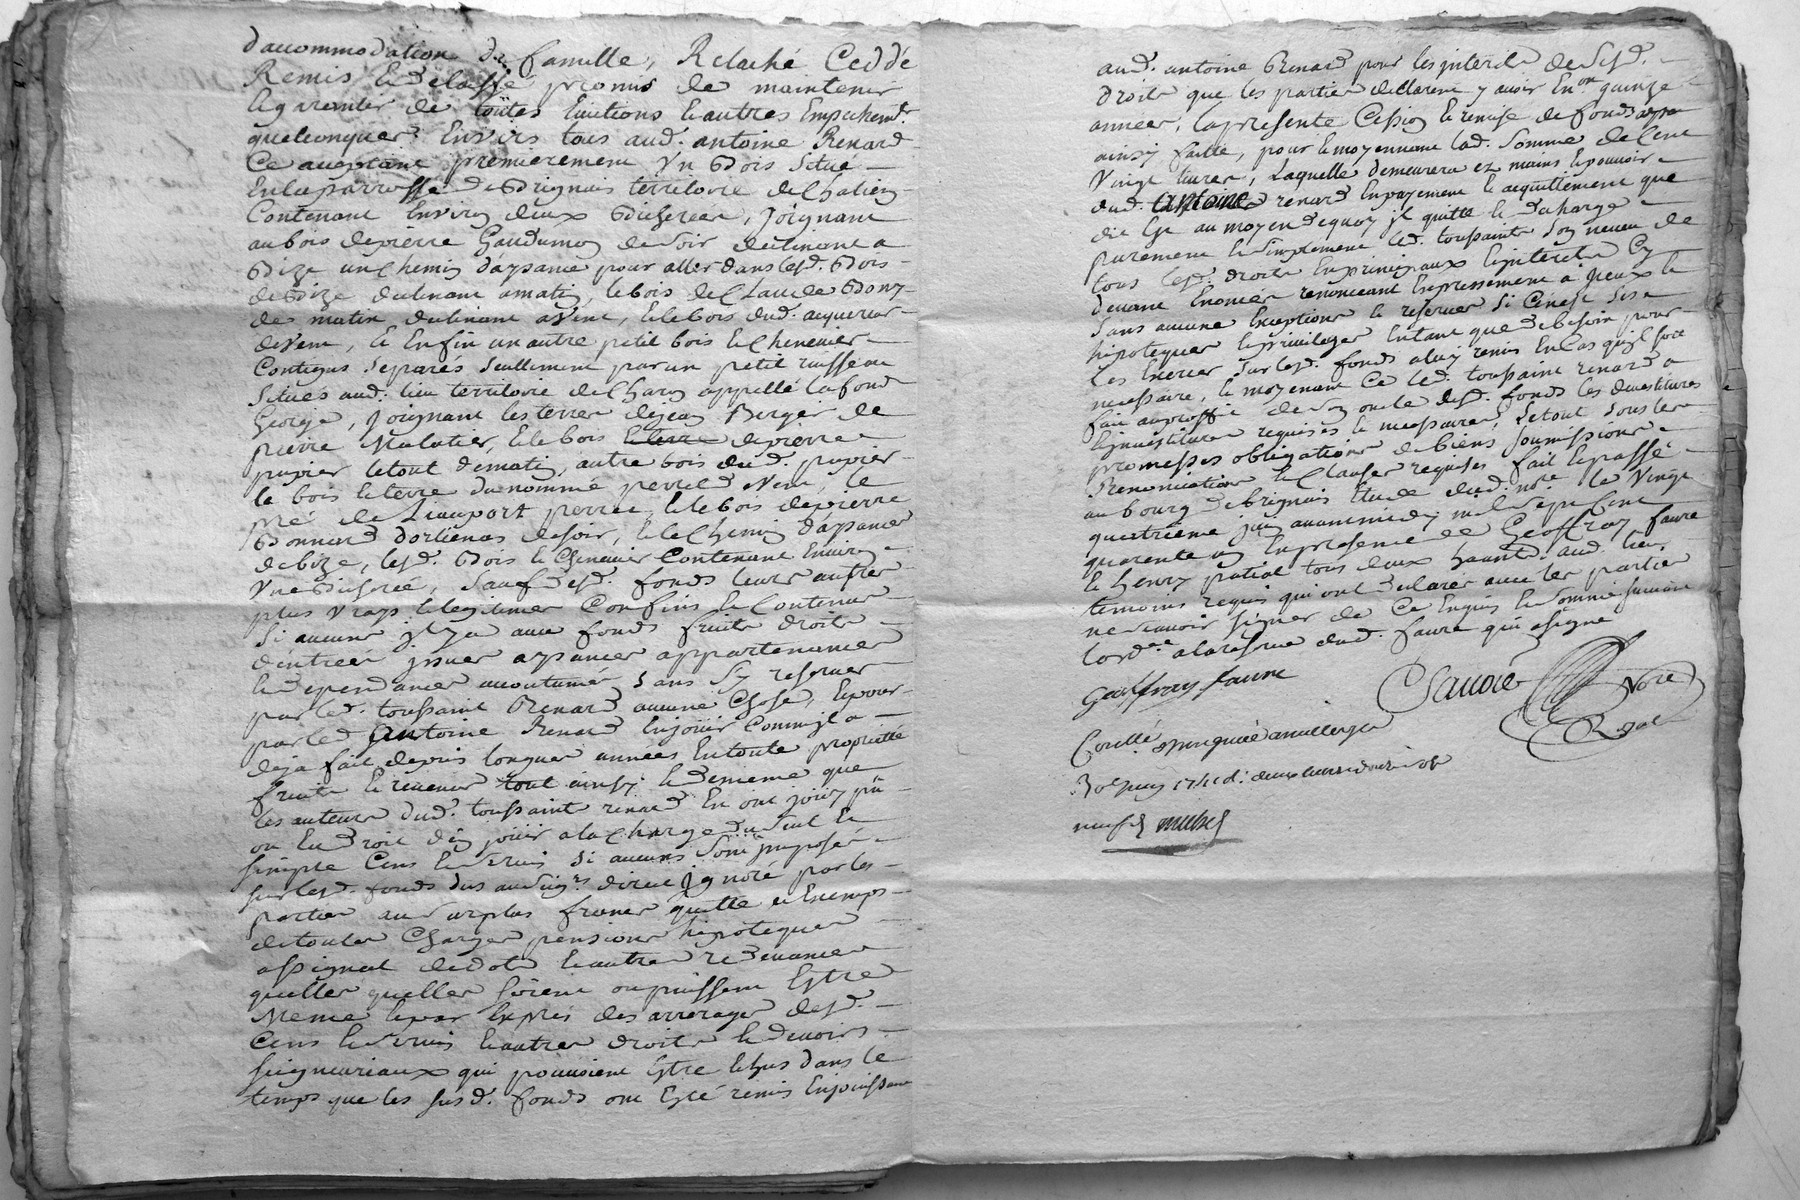 d'accommodation de famille, Relaché Ceddé
Remis et delaissé promis de maintenir
et garentir de toutes Evitions et autres Empechemt.
quelconques Envers tous aud. antoine Renard
Ce acceptant premierement un Bois situé
En la parroisse de Brignais territoire de Chalien
Contenant Environ deux Bicherées, joignant
au bois de pierre Gaudumon de soir declinant a
Bize un Chemin d'aysance pour aller dans lesd. Bois
de Bize declinant a matin, le bois de Claude Bony
de matin declinant a vent, et le bois dud. acquereur
de vent, et Enfin un autre petit bois et Chenevier
Contigus separés seullement par un petit ruisseau
situés aud. lieu territoire de Charg appellé la fond
George, joignant les terres de jean Berger de
pierre Malatier, et le bois et terre de pierre
pupier le tout de matin, autre bois dud. pupier
le bois et terre du nommé perret de vent, le
pré de Lieuport perret, et le bois de pierre
Bonnard d'orlienas de soir, et le Chemin d'aysances
de bize, lesd. Bois et Chenevier Contenant Environ
une Bicherée, sauf desd. fonds leurs autres
plus vrays et legitimes Confins et Contenue
si aucune il y a avec fonds fruits droits
d'entrées issues aysances appartenances
et dependances accoutumés sans s'y reserver
par led. toussaint Renard aucune Chose, et pour
par led. Antoine Renard En jouir Comm'il a
deja fait depuis longues années En toute proprietté
fruits et revenus tout ainsy et de meme que
les auteurs dud. toussaint renard En ont jouy pû
ou Eu droit d'en jouir a la Charge du seul et
simple Cens et servis si aucuns sont imposés
sur lesd. fonds dus au seigrs. direct ignoré par les
parties au surplus francs quitte et Exempts
de toutes Charges pensions hipoteques
assignat de dots et autres redevances
quelles quelles soient ou puissent Estre
Meme et par Exprés des arrerages desd.
Cens et servis et autres droits et devoirs
seigneuriaux qui pouvoient Estre Echus dans le
temps que les susd. fonds ont Esté remis En jouissance
aud. antoine Renard pour les interets desd.
droits que les parties declarent y avoir Envon quinze
années, la presente Cession et remise de fonds
ainsy faitte, pour et moyennant lad. somme de Cent
Vingt livres, Laquelle demeurera ez mains et pouvoir
dud. Antoine renard En payement et acquittement que
dit Est au moyen de quoy il quitte et decharge
purement et simplement led. toussaint son neveu de
tous lesd. droits En principaux et interets Cy
devant Enoncés renonceant Expressement à Iceux et
sans aucune Exception et reserver si Cenest ses
hipoteques et privileges En tant que de besoin pour
les Exercer sur lesd. fonds a luy remis En Cas qu'il soit
necessaire, et moyenant Ce led. toussaint renard a
fait au proffit de son oncle desd. fonds les devestitures
et investitures requises et necessaires, Le tout sous les
promesses obligations de biens soumissions
Renonciations et Clauses requises fait et passé
au bourg de brignais Etude dud. nore. le Vingt
quatrieme juin avant midy mil sept Cent
quarente un En presence de Geoffray faure
et henry patiat tous deux habants. aud. lieu,
temoins requis qui ont declarer avec les parties
ne scavoir signer de Ce Enquis et sommés suivant
lordce. a la reserve dud. faure qui a signé
geoffray faure
Nore
Royal